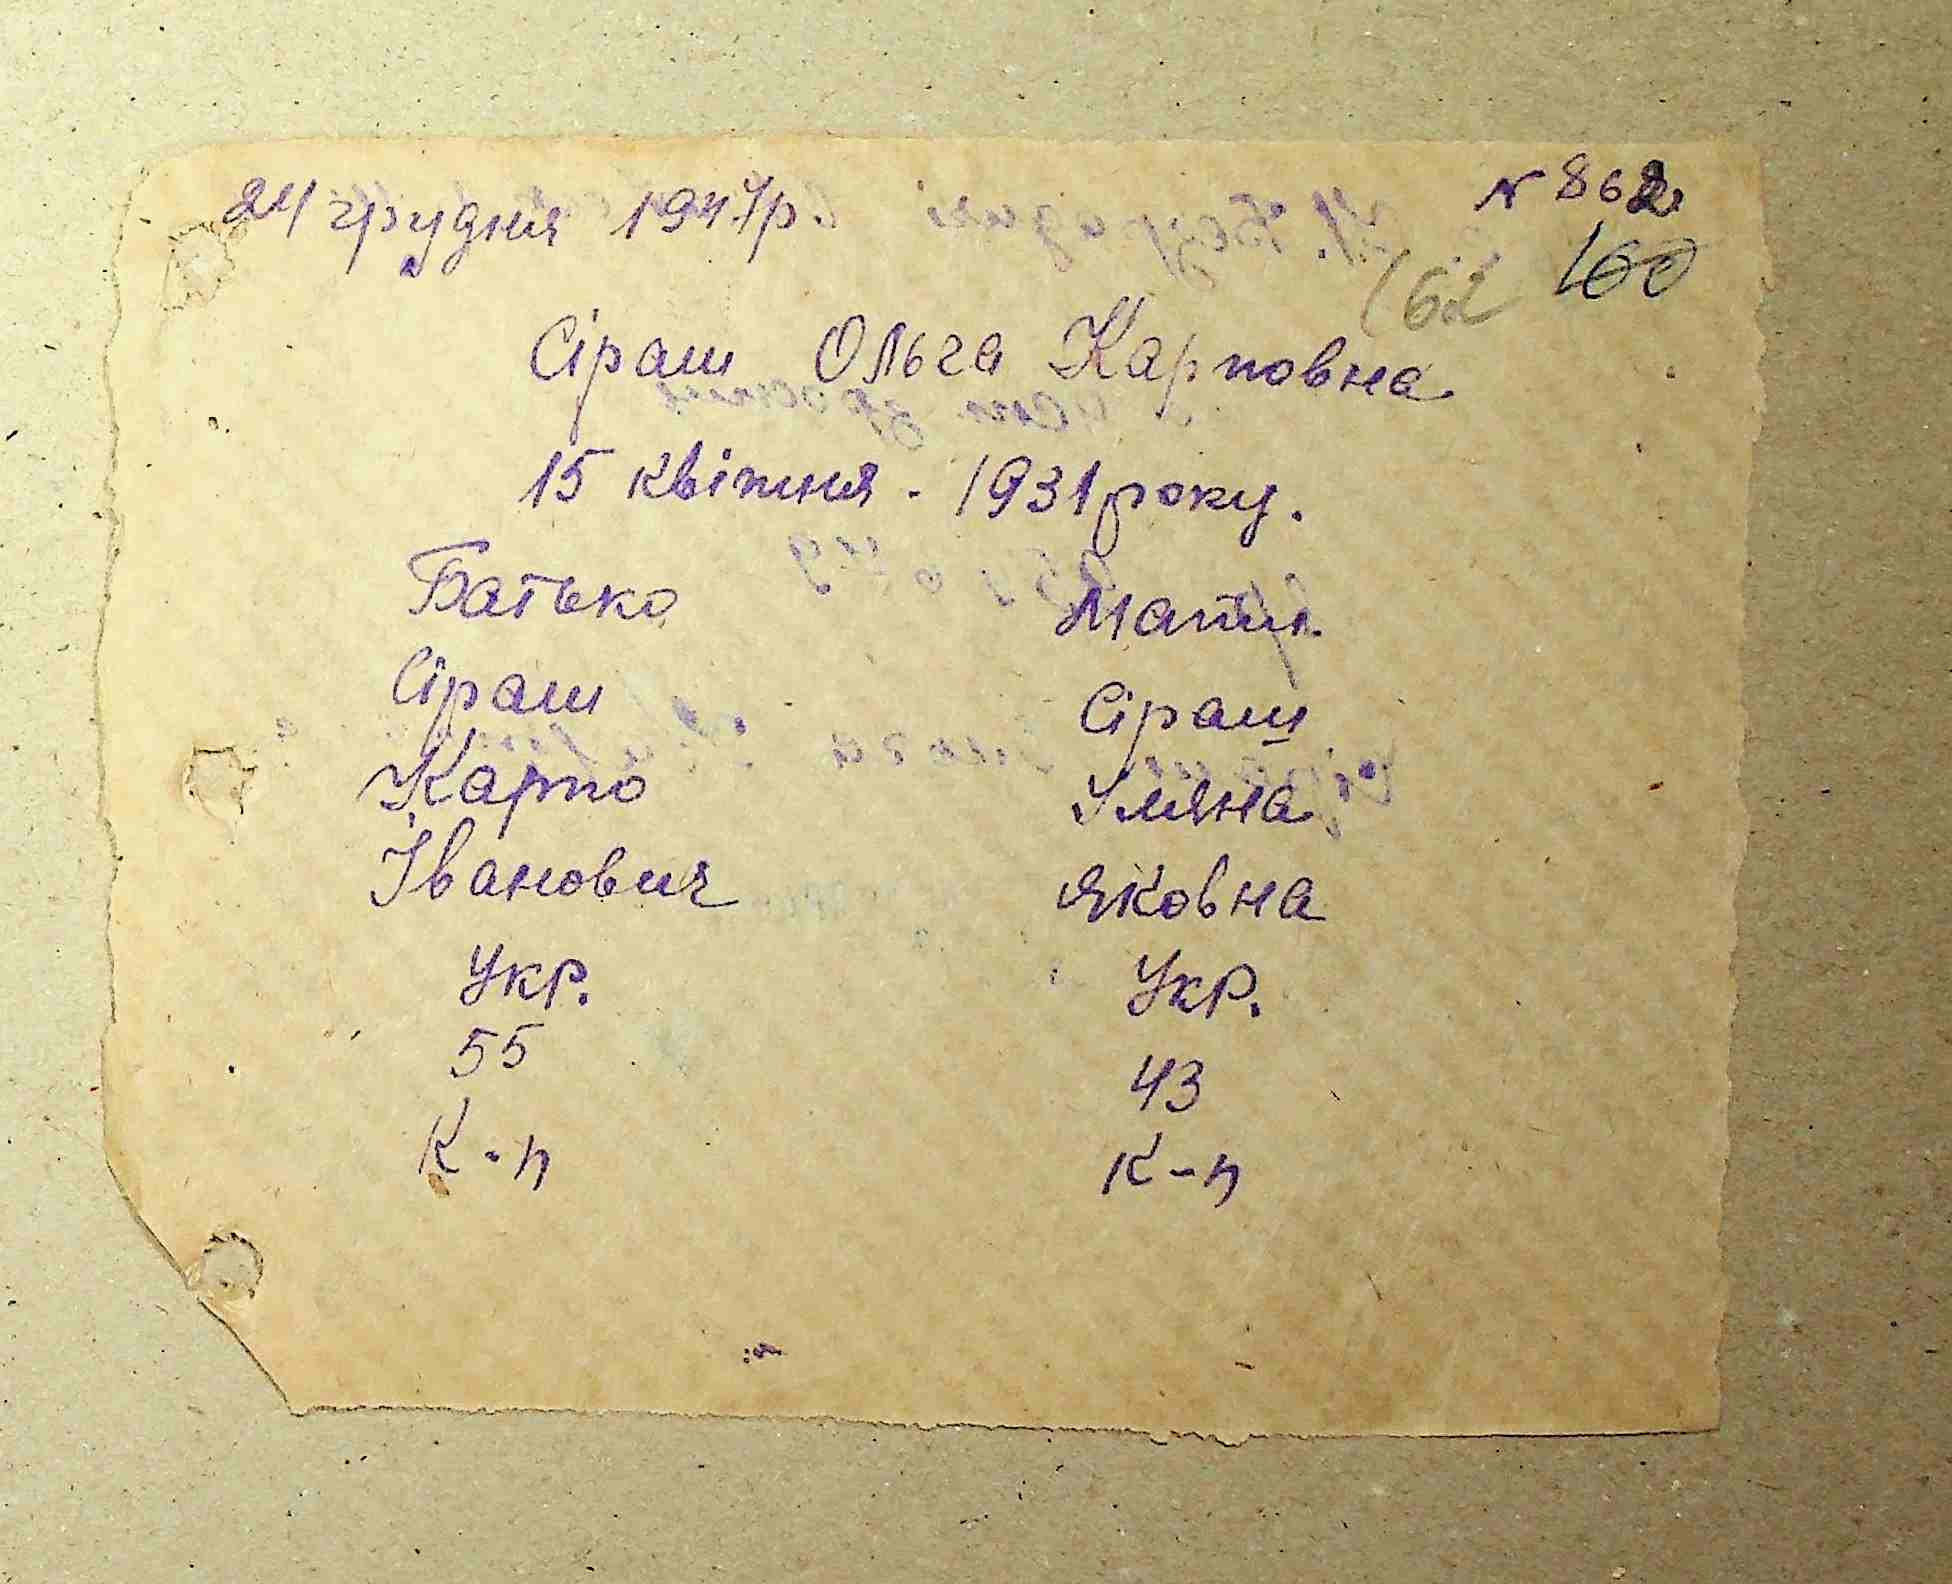 24 грудня 1947р. № 862
162 100
Сіраш Ольга Карповна
15 квітня - 1931 року.
Батько Мати.
Сіраш Сіраш
Карпо Уляна
Іванович Яковна
Укр. Укр.
55 43
К-п К-п